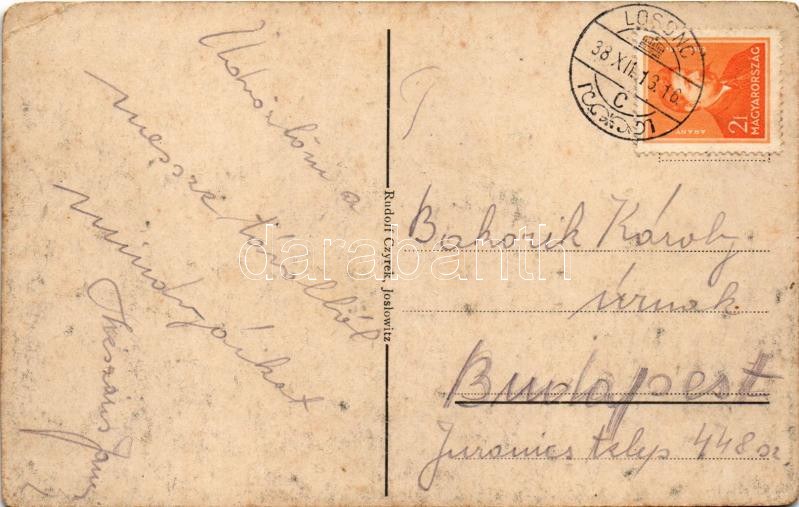 Üdvözlöm a
messze távolból
mindnyájukat
Mészáros
Rudolf Czyrek, Joslowitz
LOSONC
38 XII. 13. 16
C
ARANY
2f
MAGYARORSZÁG
Bakorik Károly
úrnak
Budapest
Juranics telep 448 sz
darabanth